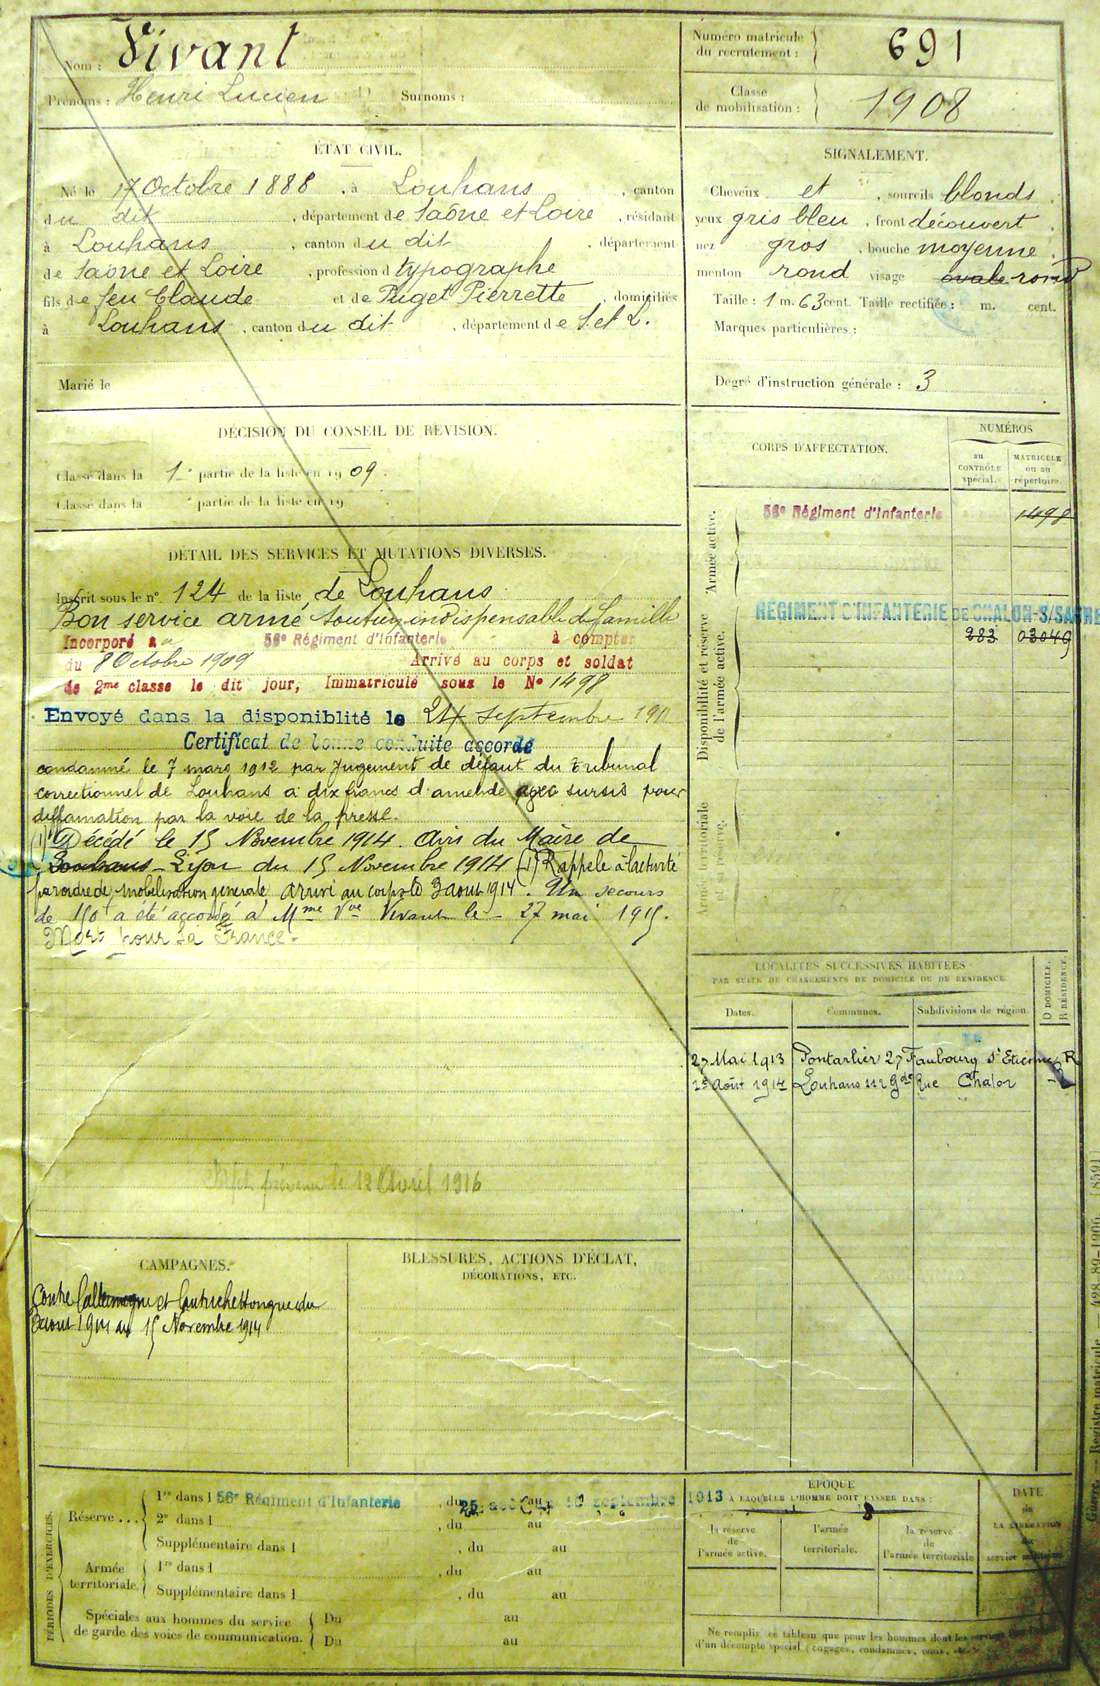 Nom : Vivant
Prénoms : Henri Lucien Surnoms :
Numéro matricule
du recrutement : 691
Classe
de mobilisation : 1908
ÉTAT CIVIL.
Né le 17 Octobre 1888, à Louhans, canton
du dit, département de Saône et Loire, résidant
à Louhans, canton du dit, département
de Saône et Loire, profession d typographe
fils de feu Claude et de Puget Pierrette, domiciliés
à Louhans, canton du dit, département de S. et L.
Marié le
SIGNALEMENT.
Cheveux et, sourcils blonds
yeux gris bleu, front découvert
nez gros, bouche moyenne
menton rond visage ovale rond
Taille : 1 m. 63 cent. Taille rectifiée : m. cent.
Marques particulières :
Degré d'instruction générale : 3
DÉCISION DU CONSEIL DE RÉVISION.
Classé dans la 1e partie de la liste en 1909.
Classé dans la e partie de la liste en 19
DÉTAIL DES SERVICES ET MUTATIONS DIVERSES.
Inscrit sous le n° 124 de la liste de Louhans
Bon service armé Soutien indispensable de famille
Incorporé à 56e Régiment d'Infanterie à compter
du 8 Octobre 1909 Arrivé au corps et soldat
de 2me classe le dit jour, Immatriculé sous le No 1498
Envoyé dans la disponiblité le 24 septembre 1911
Certificat de bonne conduite accordé
condamné le 7 mars 1912 par jugement de défaut du Tribunal
correctionnel de Louhans à dix francs d'amende avec sursis pour
diffamation par la voie de la presse.
(1) Décédé le 15 Novembre 1914. Avis du Maire de
Louhans - Lyon du 15 Novembre 1914 (1) Rappelé à l'activité
par ordre de mobilisation générale arrivé au corps le 3 aout 1914. Un secours
de 150 a été accordé à Mme Vve Vivant le 27 mai 1915.
Mort pour la France.
le 12 Avril 1916
CORPS D'AFFECTATION.
NUMÉROS
au
CONTRÔLE
spécial.
MATRICULE
ou au
répertoire.
Armée active.
56e Régiment d'Infanterie 1498
Disponibilité et réserve
de l'armée active.
REGIMENT D'INFANTERIE DE CHALON-S/SAONE
283 03049
Armée territoriale
et réserve.
LOCALITÉS SUCCESSIVES HABITÉES
PAR SUITE DE CHANGEMENTS DE DOMICILE OU DE RÉSIDENCE.
D DOMICILE.
R RÉSIDENCE.
Dates. Communes. Subdivisions de région.
27 Mai 1913 Pontarlier 27 Faubourg St Etienne R
Août 1914 Louhans 112 Gde Rue Chalon
CAMPAGNES.
Contre l'allemagne et l'autriche Hongrie du
3 aout 1914 au 15 Novembre 1914
BLESSURES, ACTIONS D'ÉCLAT,
DÉCORATIONS, ETC.
PÉRIODES D'EXERCICES.
Réserve...
1re dans l 56e Régiment d'Infanterie, du 25 août au 10 septembre 1913
2e dans l, du au
Supplémentaire dans l, du au
Armée
territoriale.
1re dans l, du au
Supplémentaire dans l, du au
Spéciales aux hommes du service
de garde des voies de communication.
Du au
Du au
ÉPOQUE
À LAQUELLE L'HOMME DOIT PASSER DANS :
la réserve
de
l'armée active.
l'armée
territoriale.
la réserve
de
l'armée territoriale
DATE
de
LA LIBÉRATION
du
service militaire.
Ne remplir ce tableau que pour les hommes dont les services
d'un décompte spécial (engagés, condamnés, omis,
Guerre. Registre matricule. — 428-89-1906. [859]